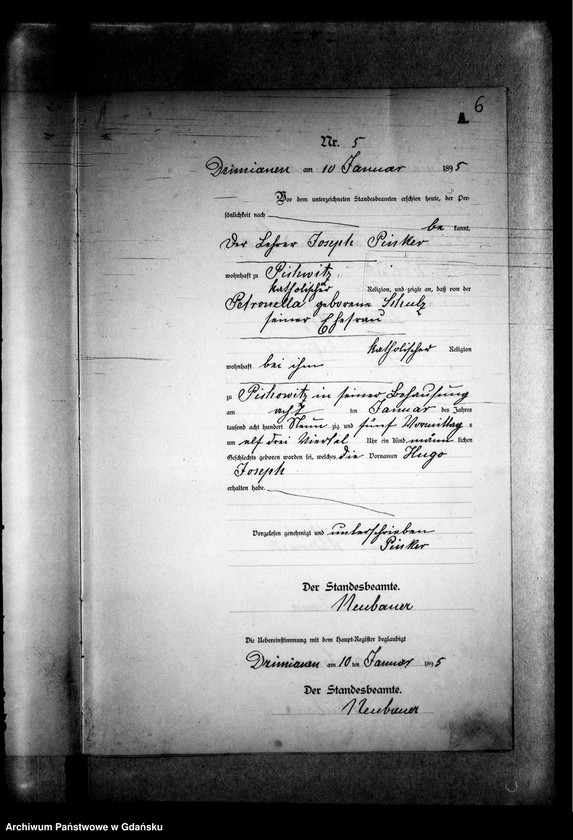 6
A
Nr. 5
Dzimianen am 10 Januar 1895
Vor dem unterzeichneten Standesbeamten erschien heute, der Per-
sönlichkeit nach
be kannt,
Der Lehrer Joseph Pinker
wohnhaft zu
katholischer Religion, und zeigte an, daß von der
Petronella geborene Schulz
seiner Ehefrau
katholischer Religion
wohnhaft bei ihm
zu in seiner Behausung
am acht ten Januar des Jahres
tausend acht hundert Neun zig und fünf Vormittag s
um elf drei Viertel Uhr ein Kind männ lichen
Geschlechts geboren worden sei, welches die Vornamen Hugo
Joseph
erhalten habe.
Vorgelesen genehmigt und unterschrieben
Pinker
Der Standesbeamte.
Neubauer
Die Uebereinstimmung mit dem Haupt-Register beglaubigt
Dzimianen am 10 ten Januar 1895
Der Standesbeamte.
Neubauer
Archiwum Państwowe w Gdańsku